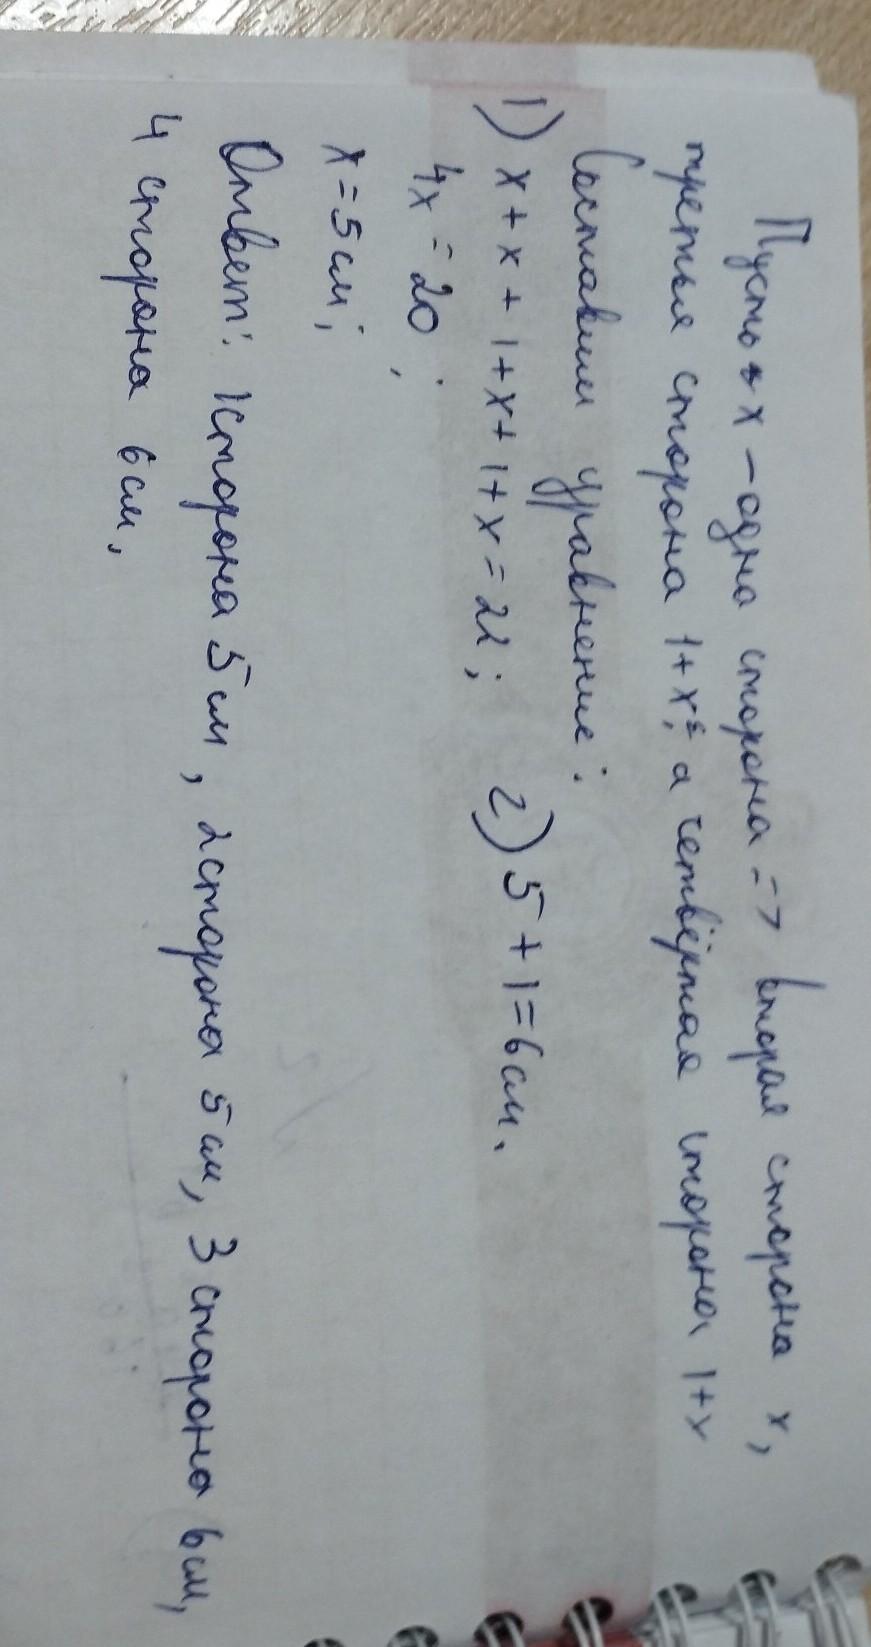 Пусть x - одна сторона => вторая сторона x,
третья сторона 1+x, а четвёртая сторона 1+x
Составим уравнение:
1) x + x + 1 + x + 1 + x = 22; 2) 5 + 1 = 6 см.
4x = 20;
x = 5 см;
Ответ: 1 сторона 5 см, 2 сторона 5 см, 3 сторона 6 см,
4 сторона 6 см,